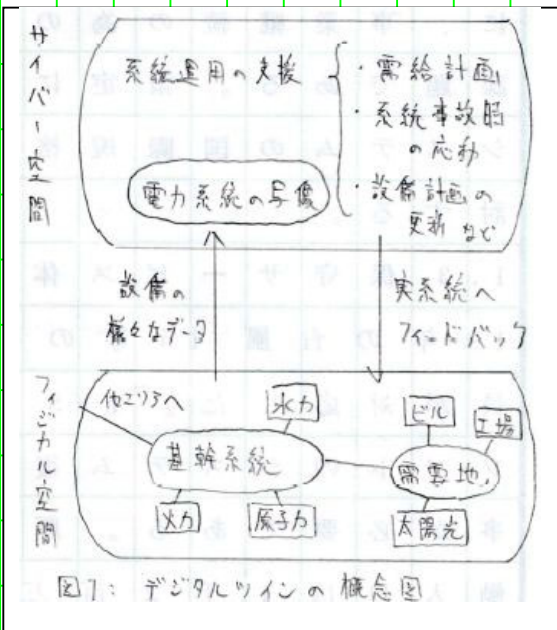 サイバー空間
系統運用の支援
・需給計画
・系統事故時
の応動
・設備計画の
更新など
電力系統の写像
設備の
様々なデータ
実系統へ
フィードバック
フィジカル空間
他エリアへ
水力
基幹系統
火力
原子力
ビル
工場
需要地
太陽光
図1: デジタルツインの概念図